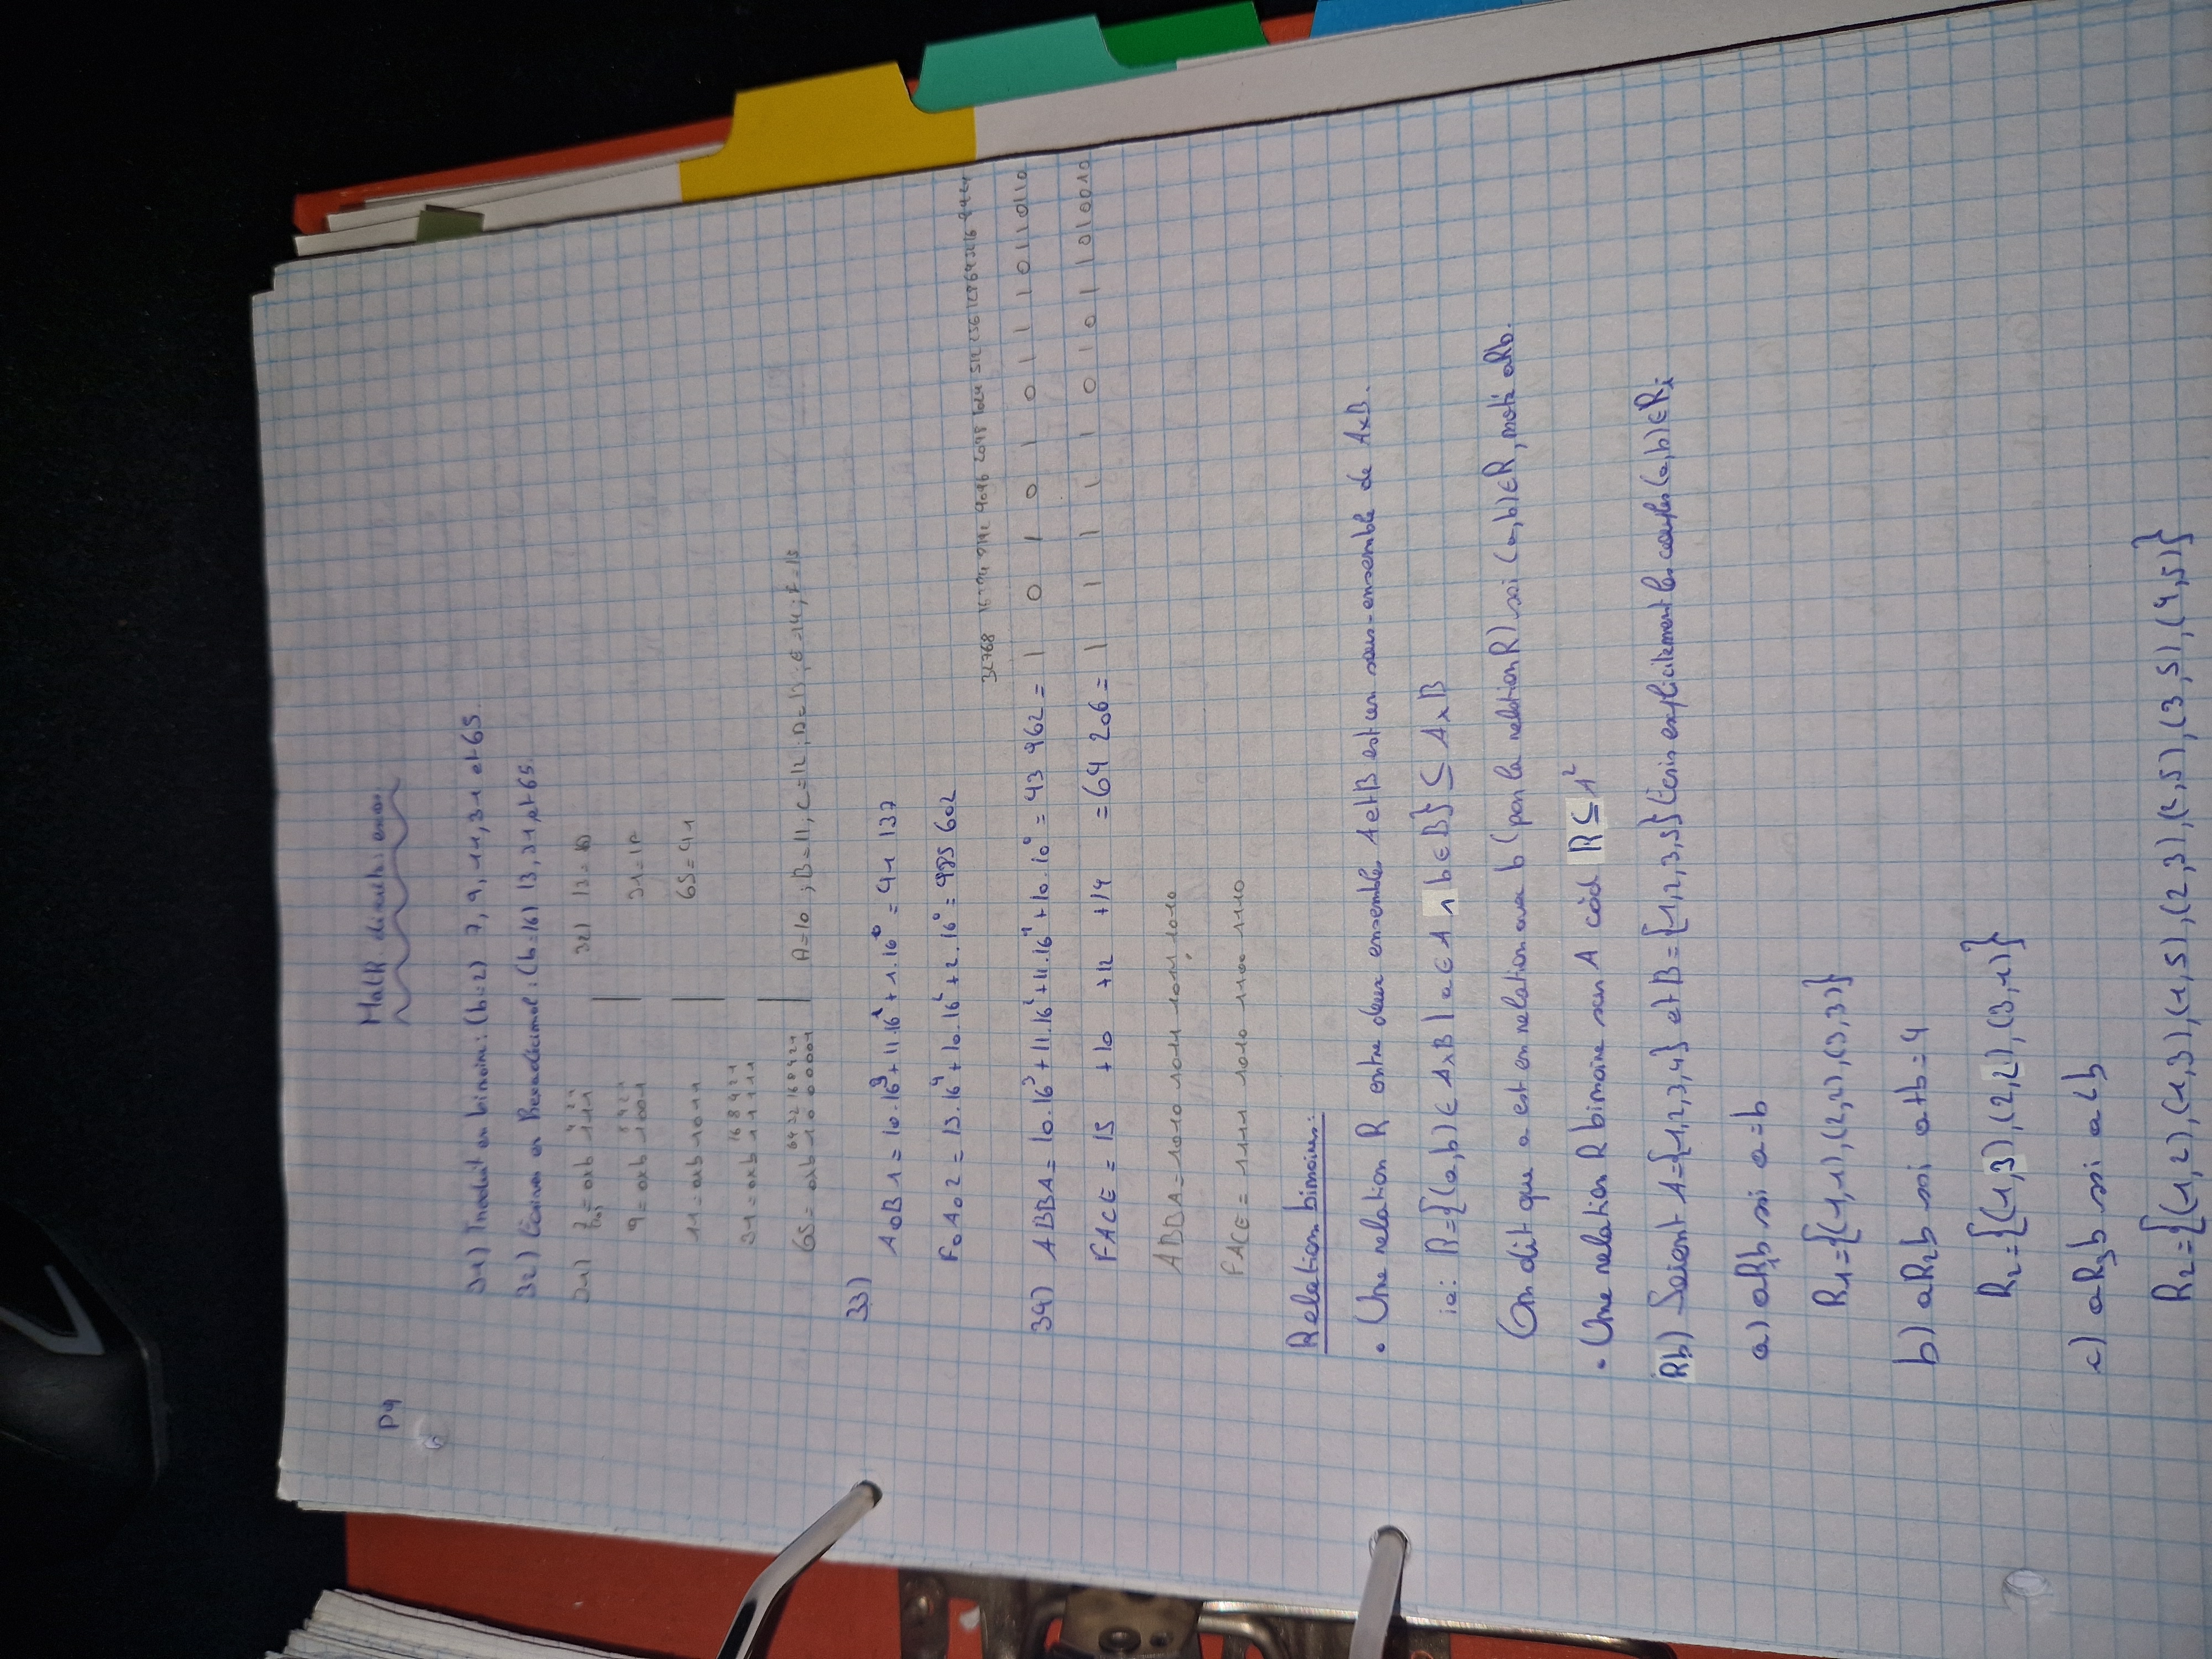 P9
Math discrète: exos.
31) Traduit en binaire: (b=2) 7, 9, 11, 31 et 65.
32) Écrives en Hexadécimal: (b=16) 13, 31, et 65.
4 2 1
31) 7 = oxb 111
32) 13 = D
8 4 2 1
9 = oxb 1001
31 = 1F
11 = oxb 1011
65 = 41
16 8 4 2 1
31 = oxb 11111
64 32 16 8 4 2 1
65 = oxb 1000001
A=10 ; B=11, C=12 ; D=13 ; E=14 ; F=15
33)
A0B1 = 10.16³ + 11.16¹ + 1.16⁰ = 41 137
F0A02 = 15.16⁴ + 10.16² + 2.16⁰ = 985 602
32768 16384 8192 4096 2048 1024 512 256 128 64 32 16 8 4 2 1
34) ABBA = 10.16³ + 11.16² + 11.16¹ + 10.10⁰ = 43 962 = 1 0 1 0 1 0 1 1 1 0110110
FACE = 15 +10 +12 +14 = 64 206 = 1 1 1 1 1 0 1 0 1 1010010
ABBA = 1010 1011 1011 1010
FACE = 1111 1010 1100 1110
Relation binaires:
• Une relation R entre deux ensembles A et B est un sous-ensemble de A×B.
ie: R={(a,b) ∈ A×B | a ∈ A ∧ b ∈ B} ⊆ A×B
On dit que a est en relation avec b (par la relation R) ssi (a,b)∈R, noté aRb.
• Une relation R binaire sur A càd R ⊆ A²
Rb) Soient A={1,2,3,4} et B={1,2,3,5} Écris explicitement les couples (a,b)∈Ri
a) aR1b ssi a=b
R1={(1,1),(2,2),(3,3)}
b) aR2b ssi a+b=4
R2={(1,3),(2,2),(3,1)}
c) aR3b ssi a<b
R2={(1,2),(1,3),(1,5),(2,3),(2,5),(3,5),(4,5)}